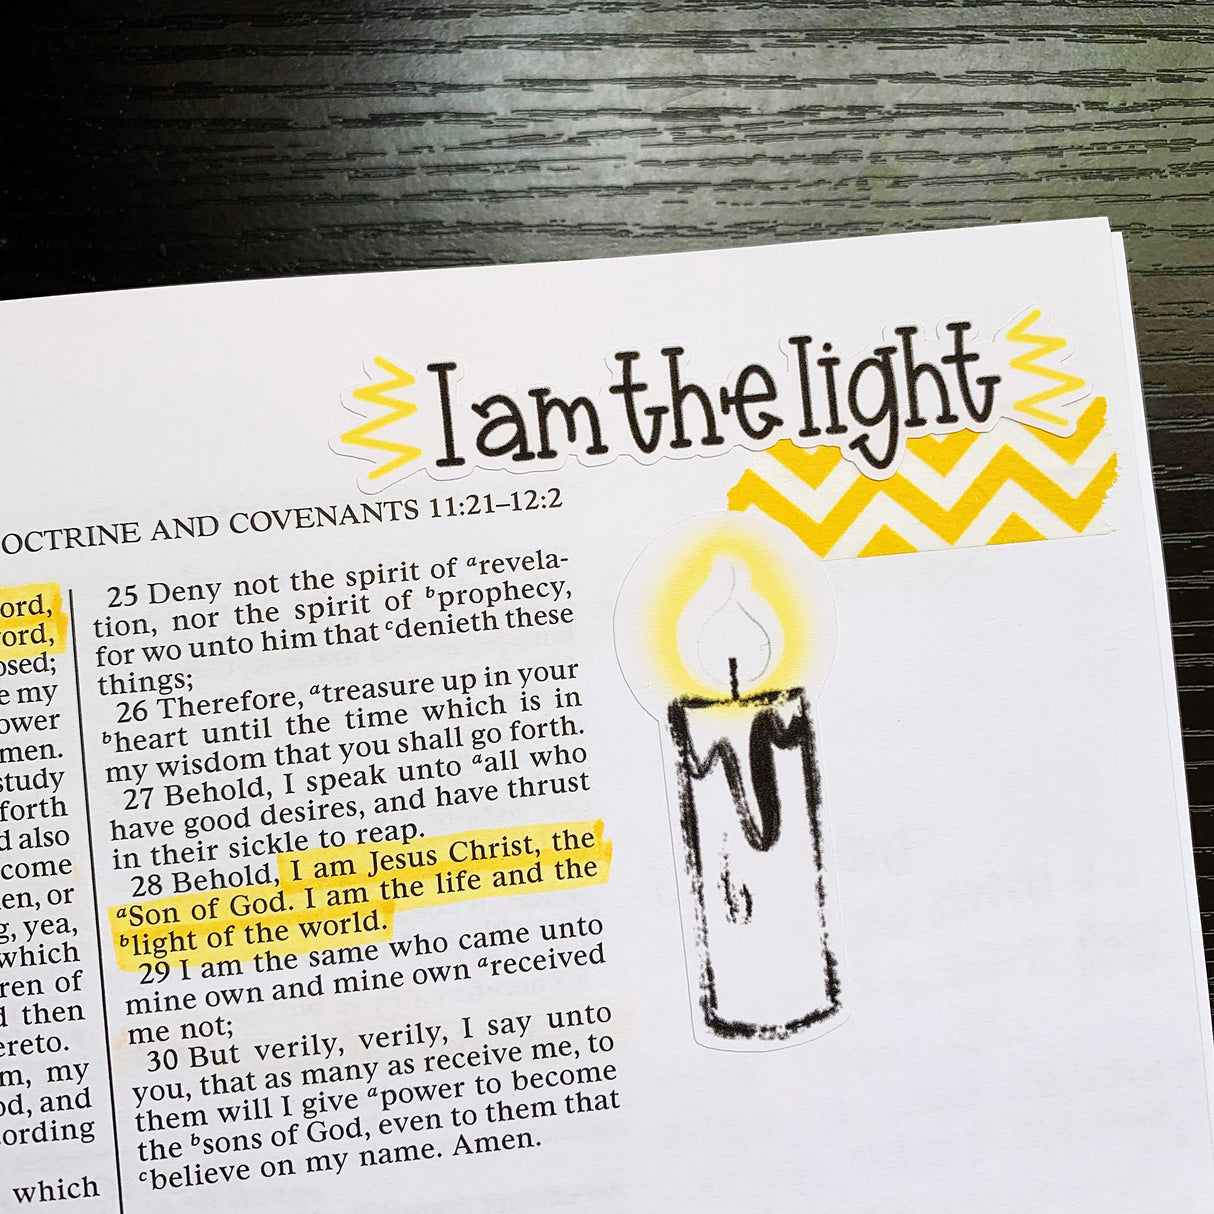 I am the light
OCTRINE AND COVENANTS 11:21–12:2
ord,
ord,
osed;
e my
ower
men.
study
forth
d also
come
en, or
g, yea,
which
ren of
d then
ereto.
m, my
od, and
cording
which
25 Deny not the spirit of ᵃrevela-
tion, nor the spirit of ᵇprophecy,
for wo unto him that ᶜdenieth these
things;
26 Therefore, ᵃtreasure up in your
ᵇheart until the time which is in
my wisdom that you shall go forth.
27 Behold, I speak unto ᵃall who
have good desires, and have thrust
in their sickle to reap.
28 Behold, I am Jesus Christ, the
ᵃSon of God. I am the life and the
ᵇlight of the world.
29 I am the same who came unto
mine own and mine own ᵃreceived
me not;
30 But verily, verily, I say unto
you, that as many as receive me, to
them will I give ᵃpower to become
the ᵇsons of God, even to them that
ᶜbelieve on my name. Amen.